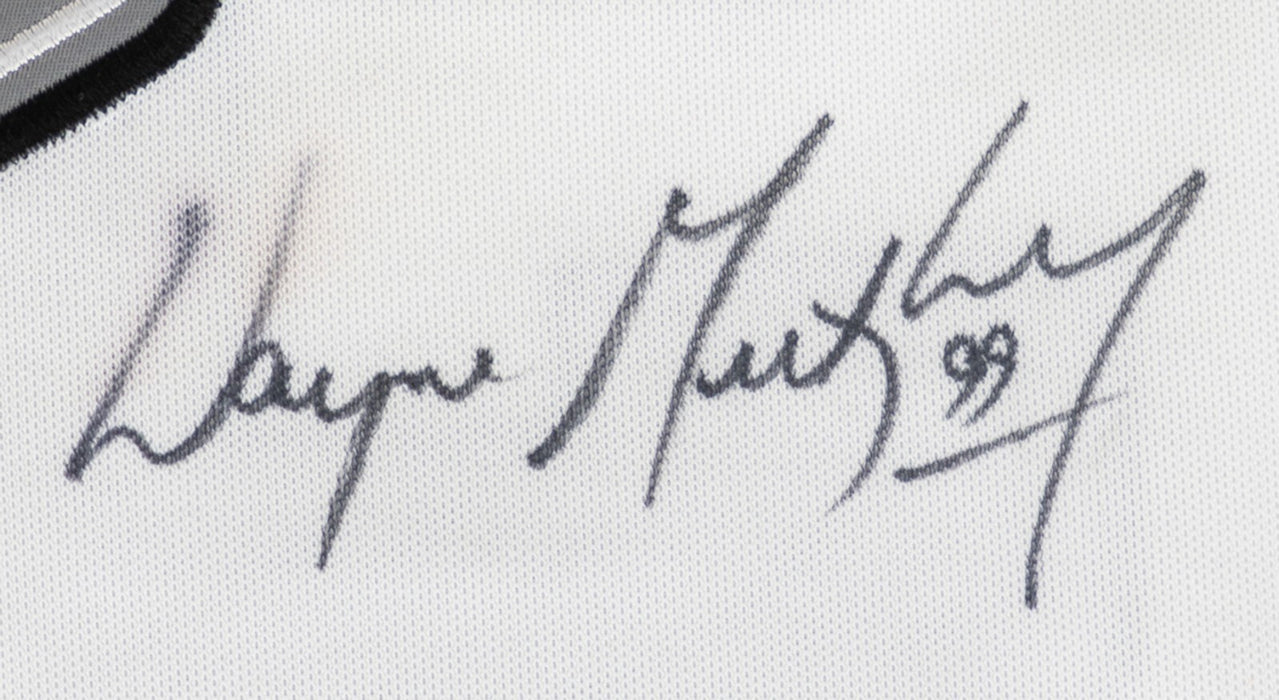 Wayne Gretzky
99